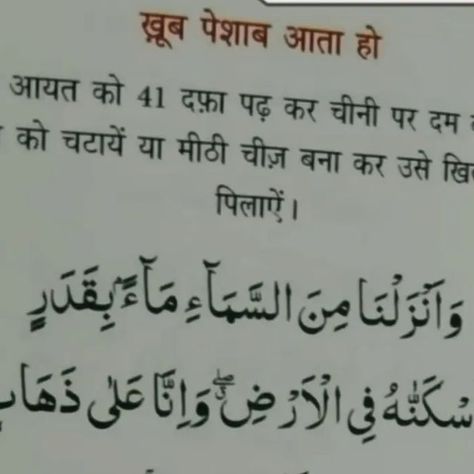 ख़ूब पेशाब आता हो
आयत को 41 दफ़ा पढ़ कर चीनी पर दम
को चटायें या मीठी चीज़ बना कर उसे
पिलाऐं।
وَاَنْزَلْنَا مِنَ السَّمَآءِ مَآءًۢ بِقَدَرٍ
سْكَنّٰهُ فِي الْاَرْضِ ۖ وَاِنَّا عَلٰى ذَهَابٍ